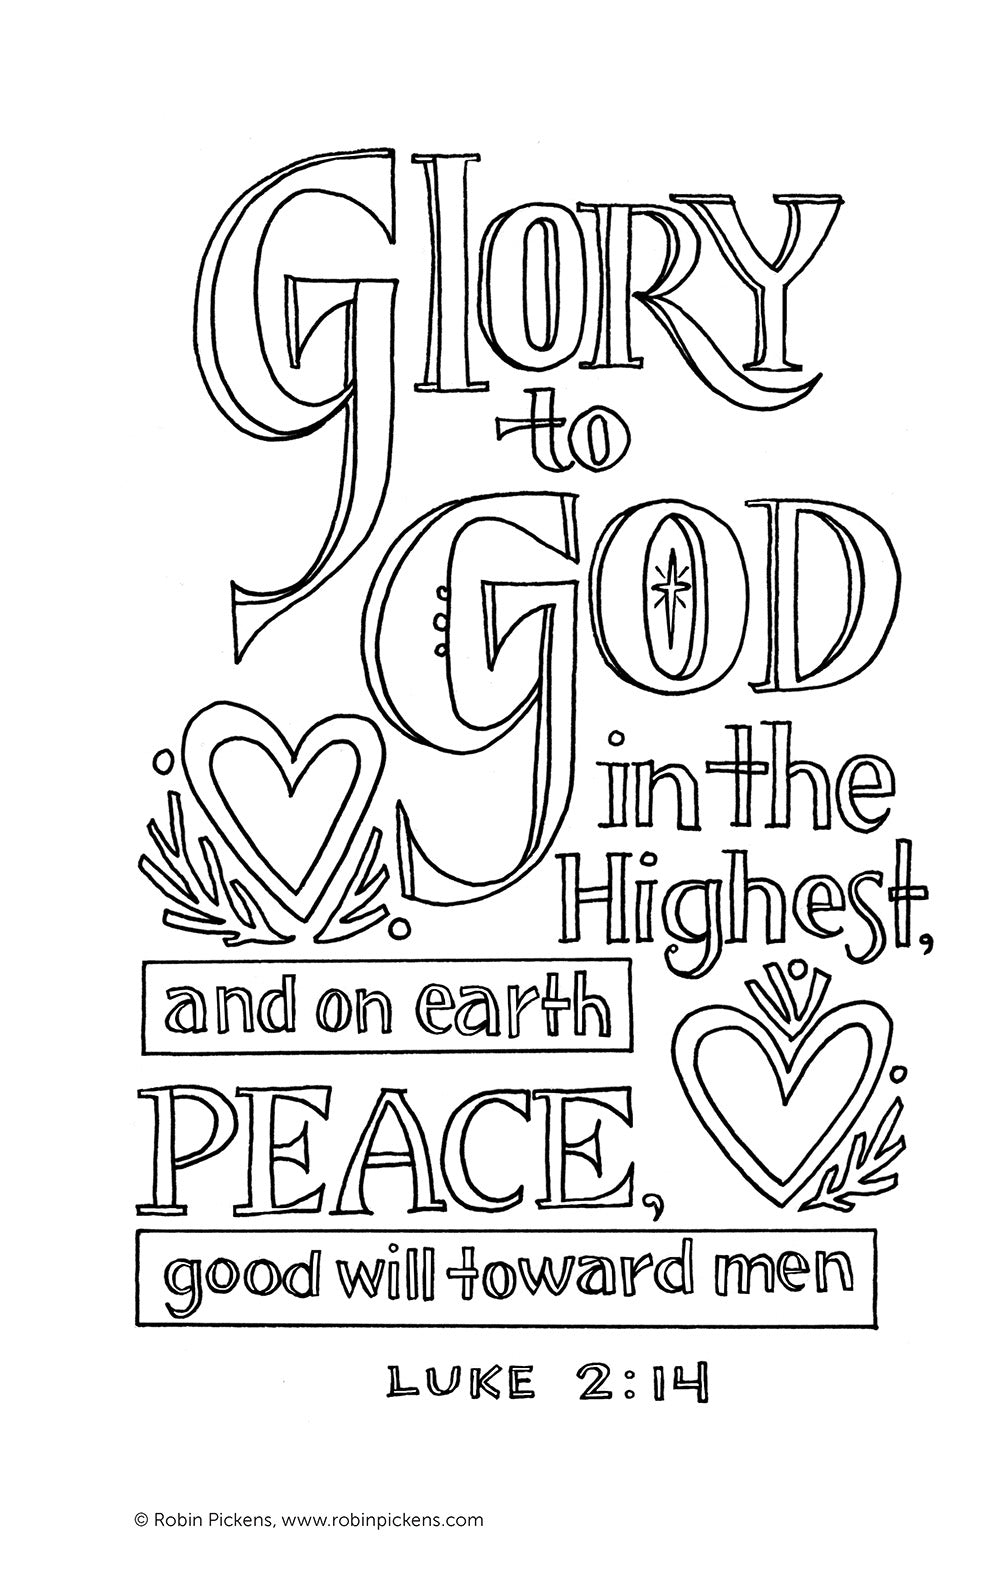 GLORY
to
GOD
in the
Highest,
and on earth
PEACE,
good will toward men
LUKE 2:14
© Robin Pickens, www.robinpickens.com